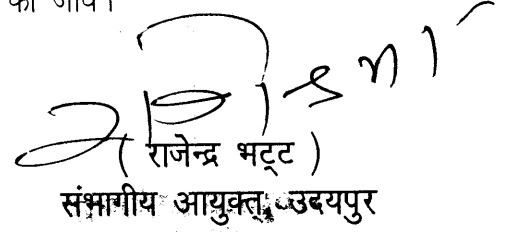 की जावे।
( राजेन्द्र भट्ट )
संभागीय आयुक्त, उदयपुर